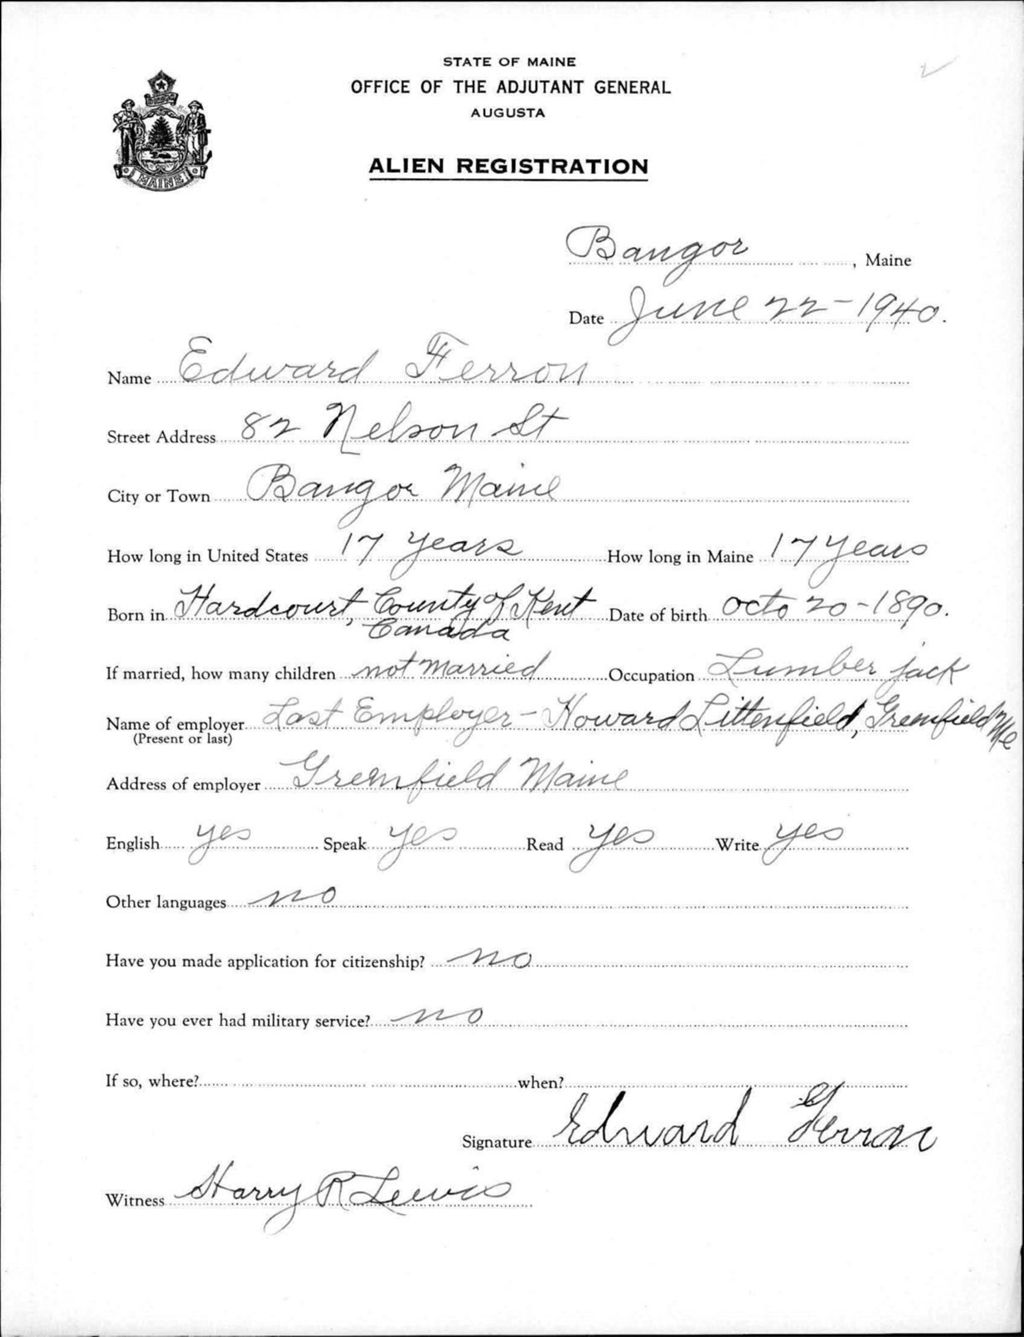 STATE OF MAINE
OFFICE OF THE ADJUTANT GENERAL
AUGUSTA
ALIEN REGISTRATION
MAINE
Bangor, Maine
Date June 22-1940.
Name Edward Ferron
Street Address 82 Nelson St
City or Town Bangor Maine
How long in United States 17 years How long in Maine 17 years
Born in Hardcourt, County of Kent Date of birth Octo 20-1890.
Canada
If married, how many children not married Occupation Lumber jack
Name of employer Last Employer- Howard Littenfield, Greenfield Me
(Present or last)
Address of employer Greenfield Maine
English yes Speak yes Read yes Write yes
Other languages no
Have you made application for citizenship? no
Have you ever had military service? no
If so, where? when?
Signature Edward Ferron
Witness Harry R Lewis